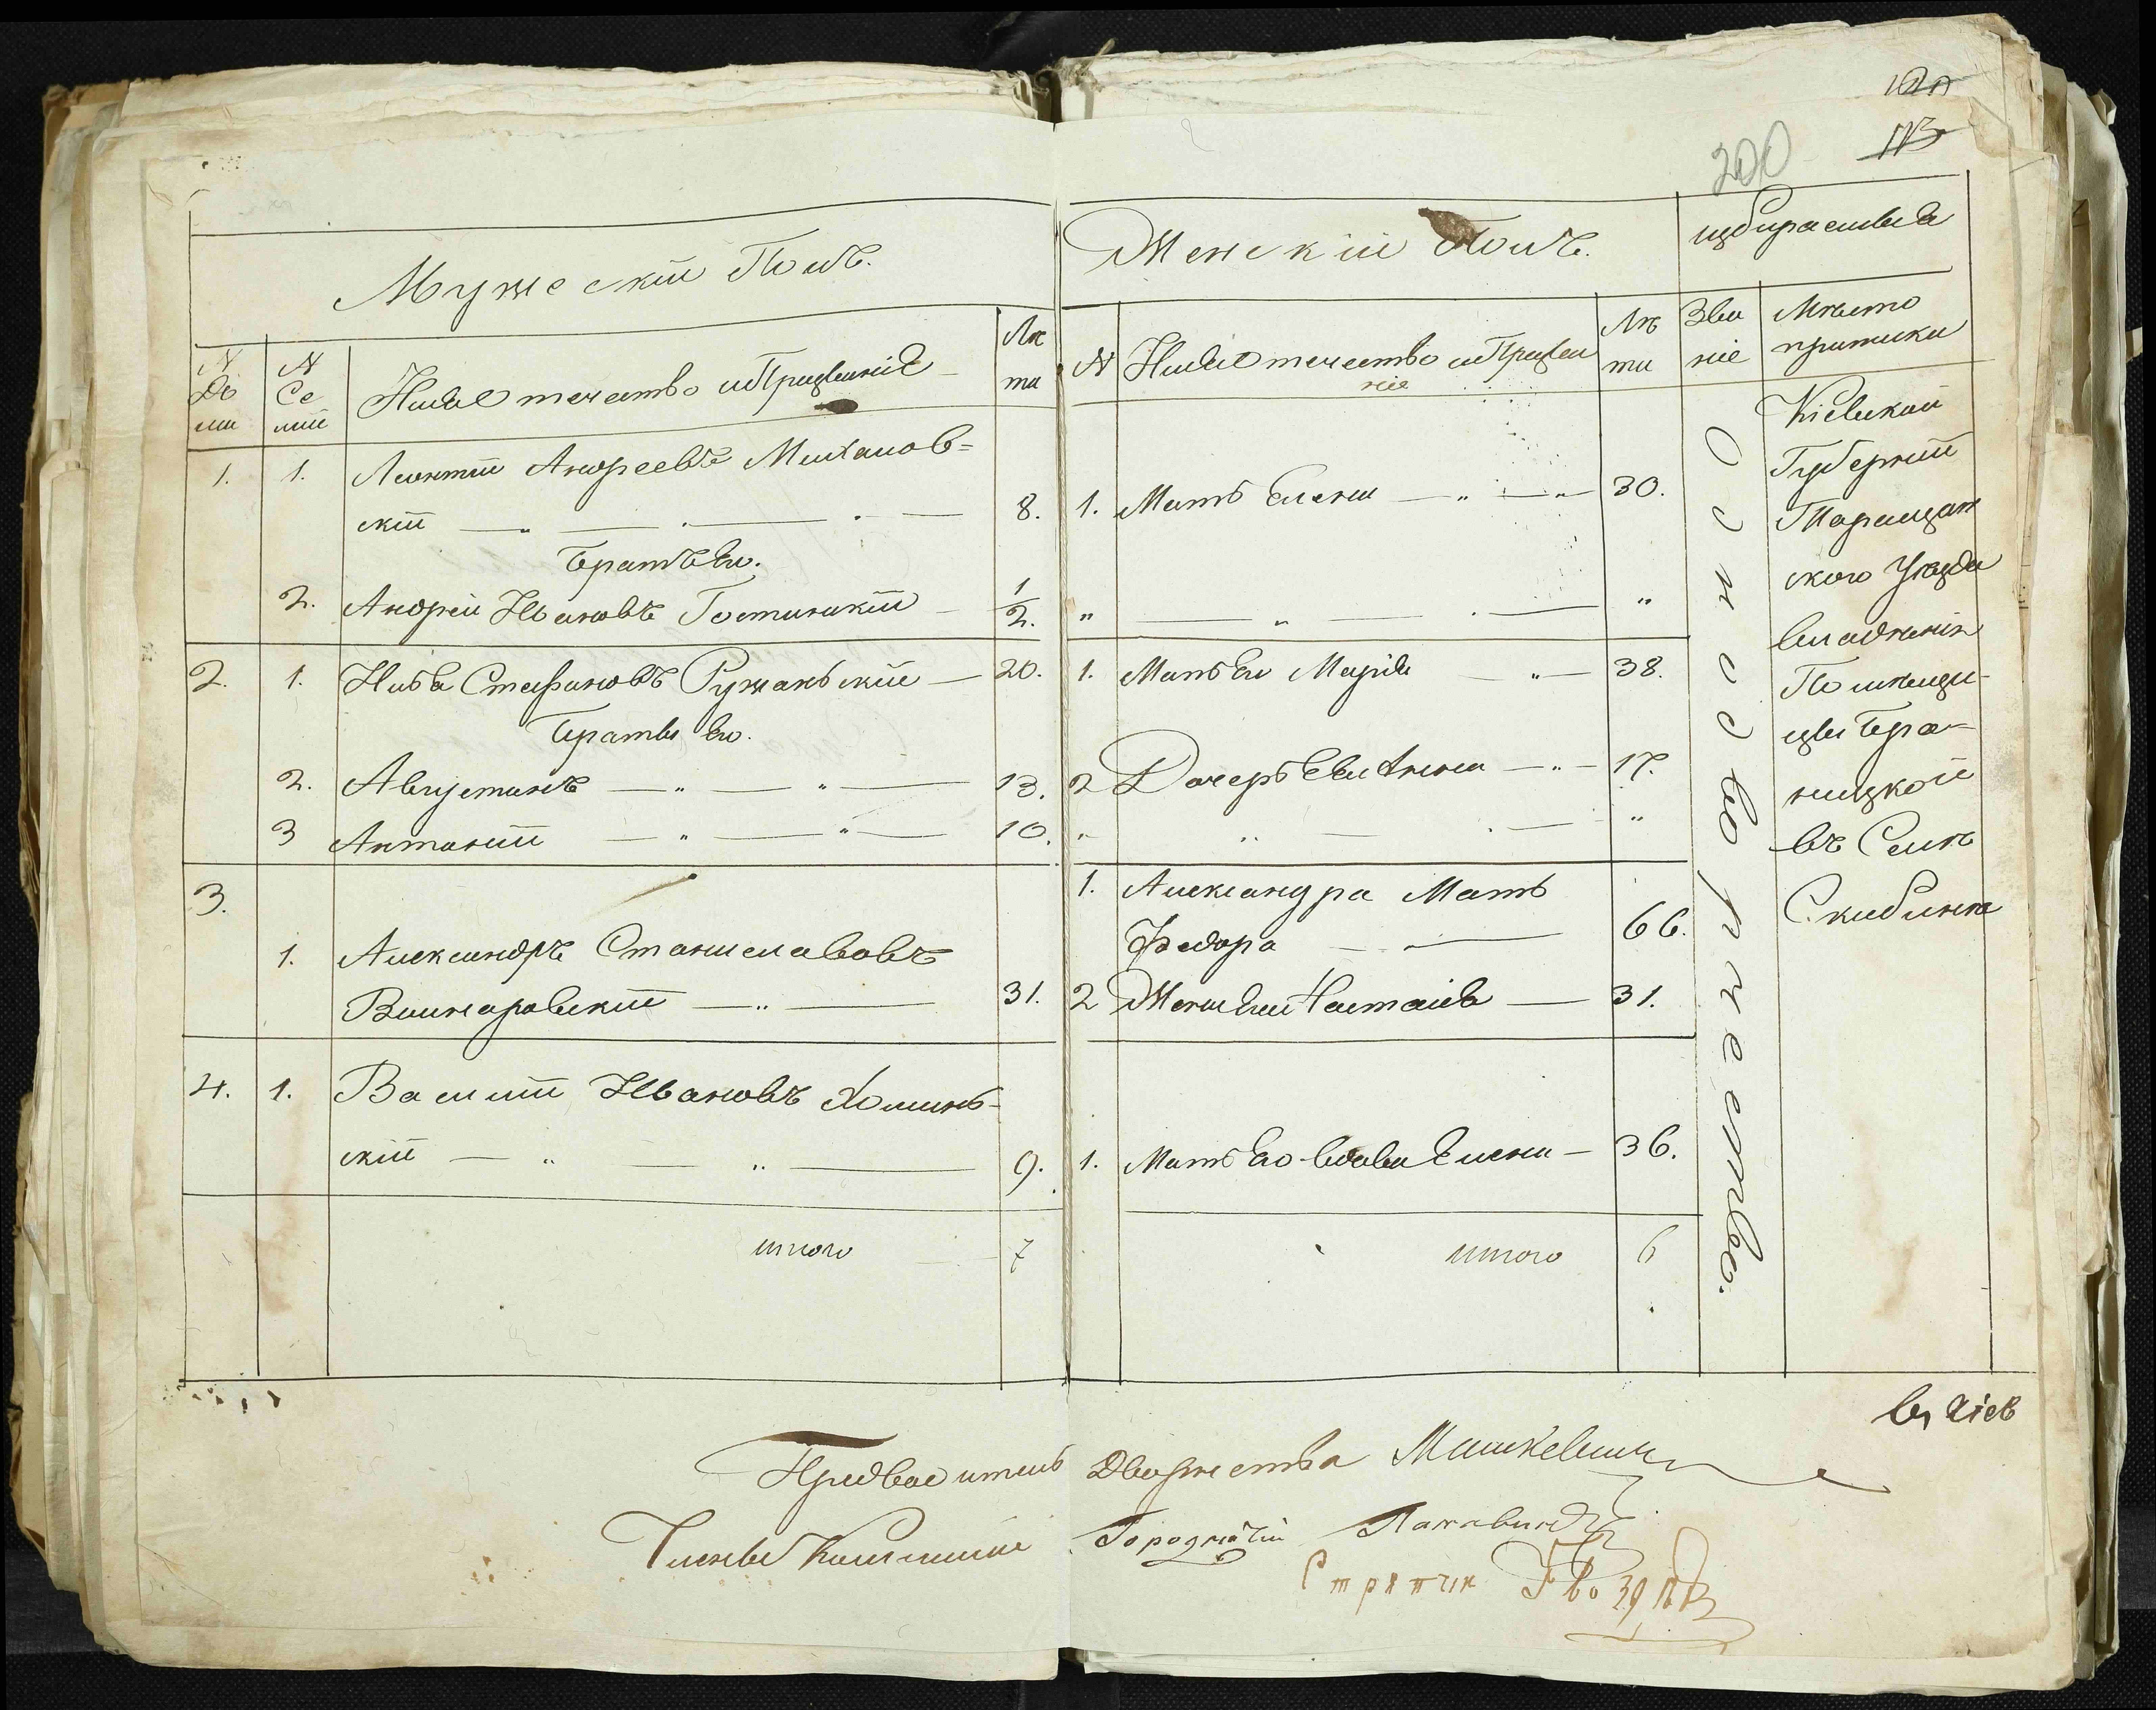 200
Мужескій Полъ.
N До ма
N Се мій
Имя Отечество и Прозваніе
Лѣ та
1. 1. Леонтій Андреевъ Михалов=
скій 8.
Братъ Его.
2. Андрей Ивановъ Гостинскій 1/2.
2. 1. Стефановъ Ружанскій 20.
Братья Его.
2. Августинъ 13.
3 Антоній 10.
3.
1. Александръ Станиславовъ
31.
4. 1. Василій Ивановъ Хоминь-
скій 9.
итого 7
Женскій Полъ.
N Имя Отечество и Прозва
ніе
Лѣ та
1. Мать Елена 30.
1. Мать Его Марія 38.
2 Дочерь Ева Анна 17.
1. Александра Мать
Федора 66.
2 Жена Его Настасія 31.
1. Мать Его вдова Елена 36.
итого 6
избираемыя
Зва ніе
Мѣсто
приписки
Однодворчество.
Кіевской
Губерніи
Таращан
ского Уезда
владѣнія
Помѣщи-
цы Бра-
ницкой
въ Селѣ
Скибинѣ
Предводитель Дворянства
Члены Коммисіи
Городничій
Стряпчій Гвоздевъ